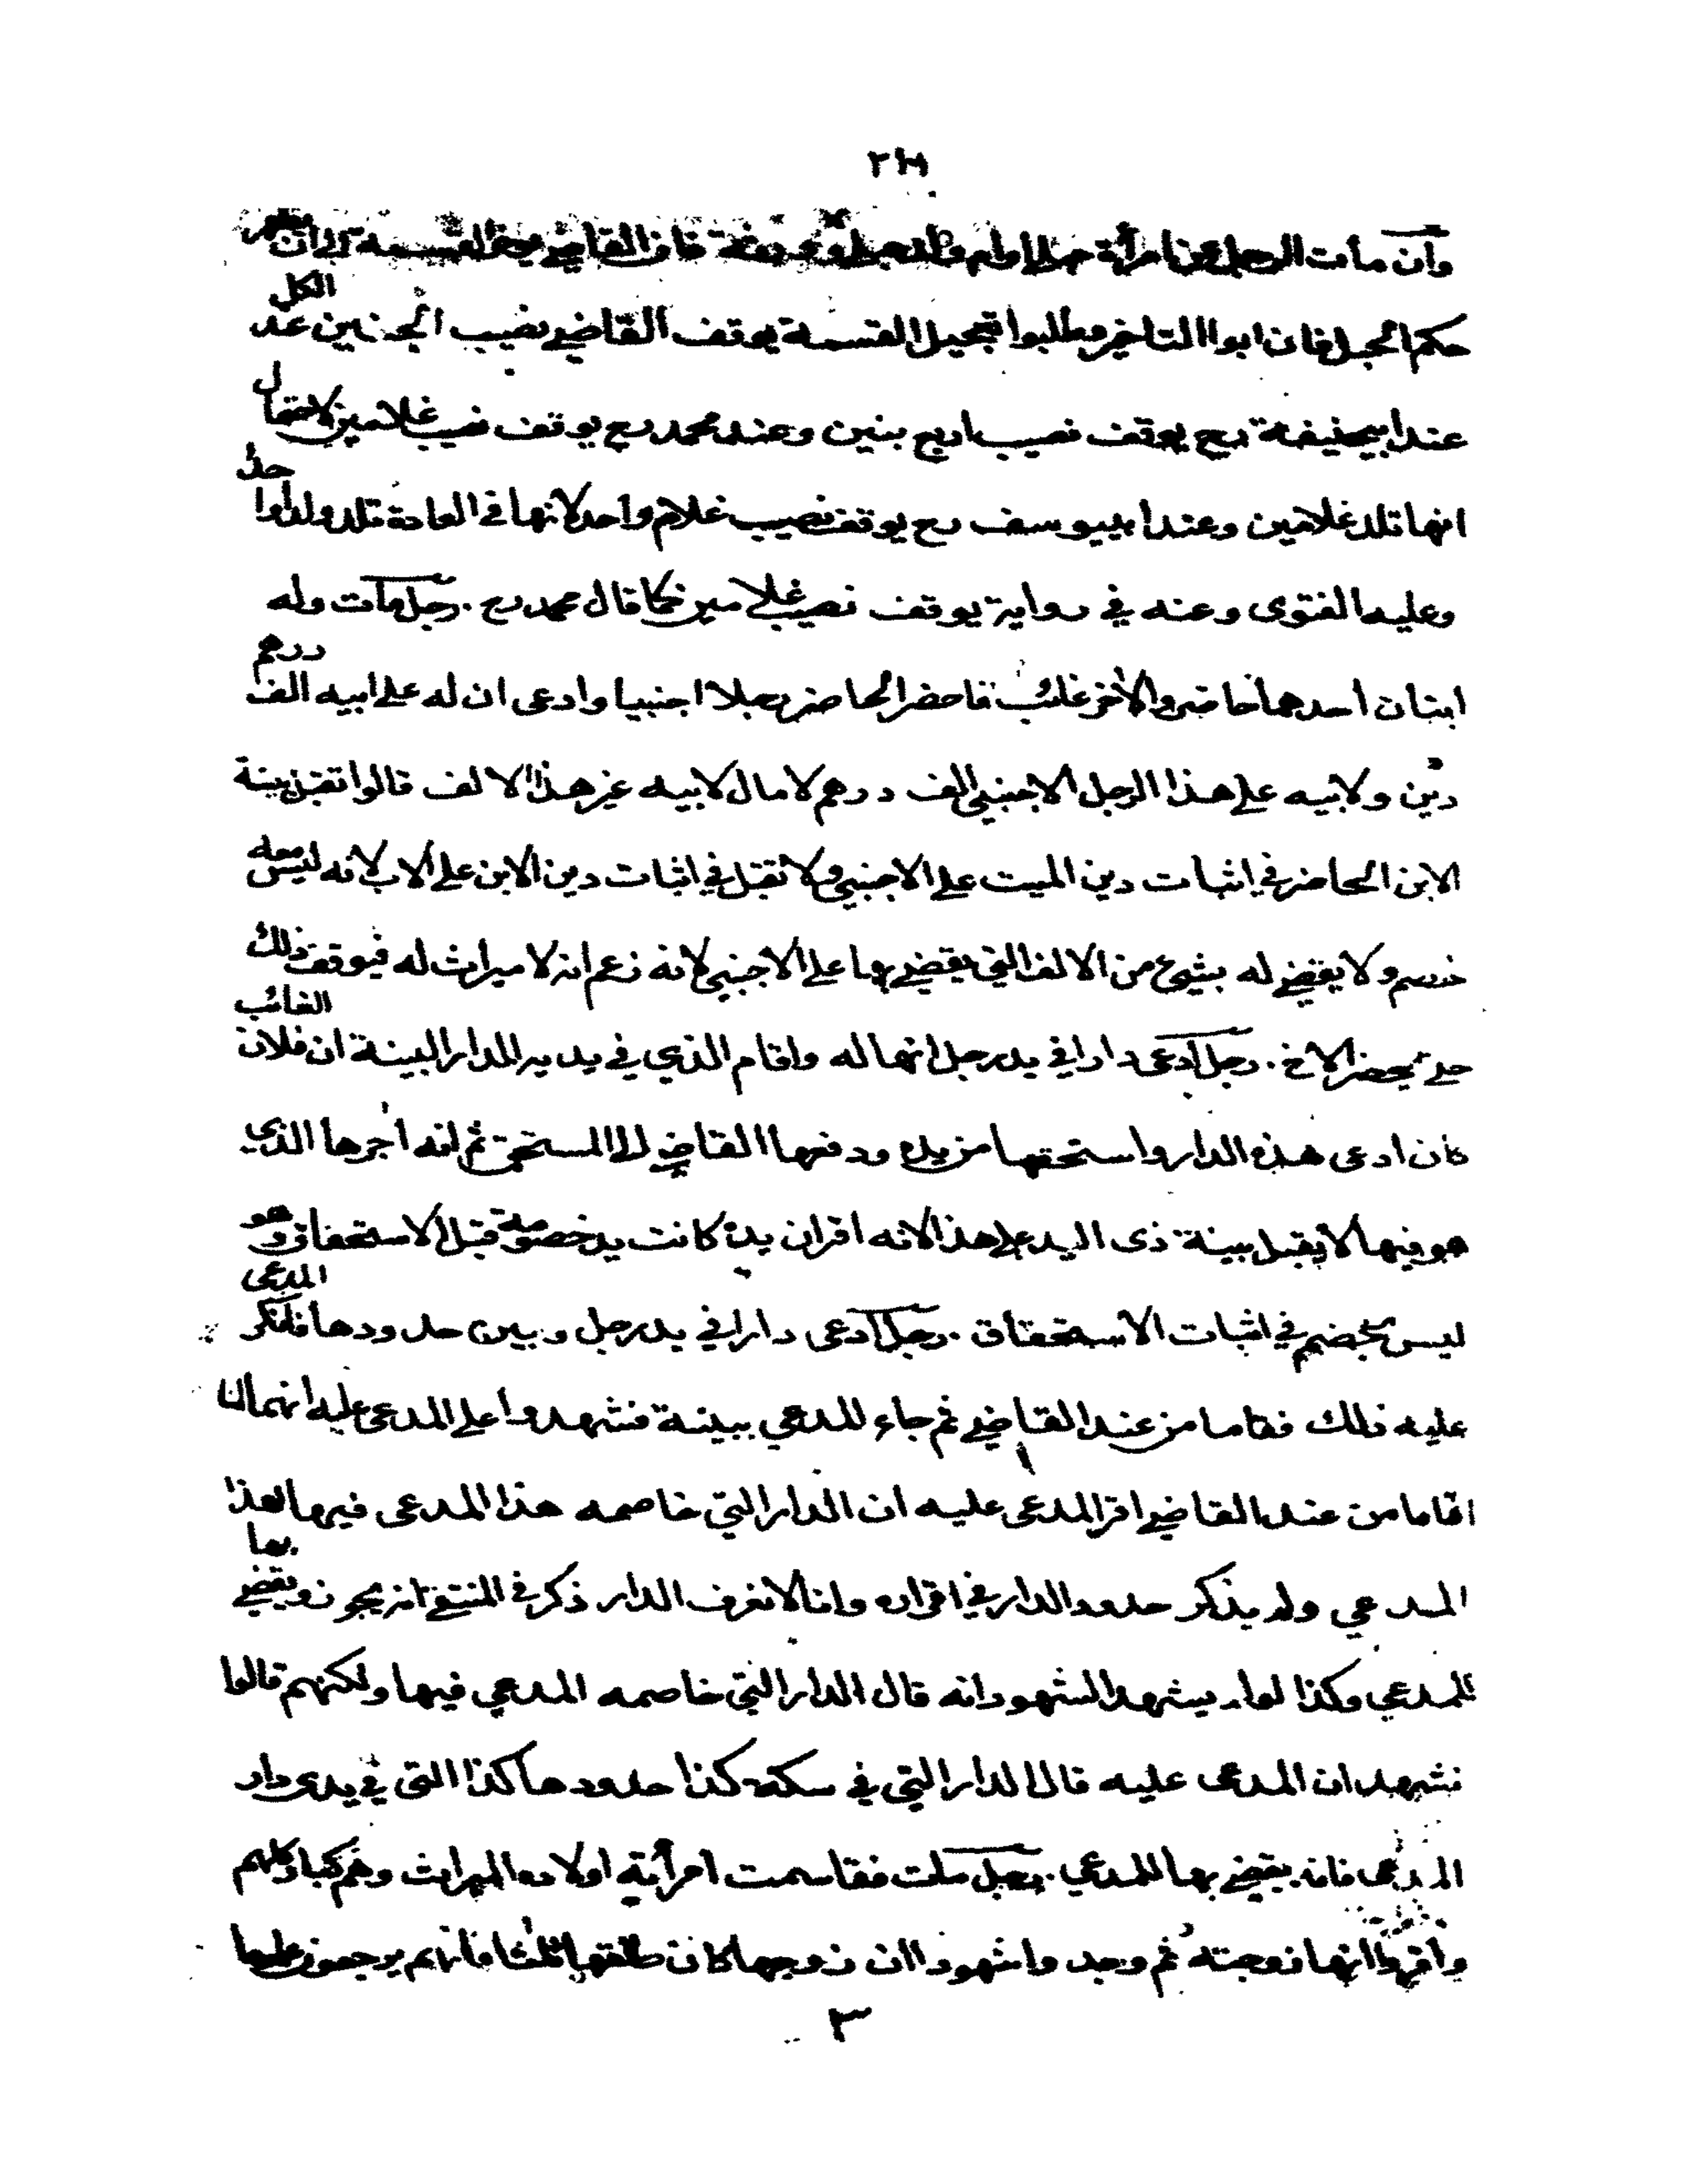 وان مات الرجل عن امرأة حامل فان القاضي القسمة الى ان
حكم الحبل فان ابوا التاخير وطلبوا تعجيل القسمة يوقف القاضي نصيب الجنين عند الكل
عند ابيحنيفة رح يوقف نصيب اربع بنين وعند محمد رح يوقف نصيب غلامين لاحتمال
انها تلد غلامين وعند ابييوسف رح يوقف نصيب غلام واحد لانها في العادة تلد ولدا واحدا
وعليه الفتوى وعنه في رواية يوقف نصيب غلامين كما قال محمد رح . رجل مات وله
ابنان احدهما حاضر والاخر غائب فاحضر الحاضر رجلا اجنبيا وادعى ان له على ابيه الف درهم
دين ولابيه على هذا الرجل الاجنبي الف درهم لا مال لابيه غير هذا الالف قالوا تقبل بينة
الابن الحاضر في اثبات دين الميت على الاجنبي ولا تقبل في اثبات دين الابن على الاب لانه ليس معه
خصم ولا يقضي له بشيء من الالف التي يقضي بها على الاجنبي لانه زعم انه لا ميراث له فيوقف ذلك
حتى يحضر الاخ . رجل ادعى دارا في يد رجل انها له واقام الذي في يديه الدار البينة ان فلان الغائب
كان ادعى هذه الدار واستحقها من يده ودفعها القاضي الى المستحق ثم انه اجرها الذي
هو فيها لا يقبل بينة ذى اليد على هذا لانه اقر ان يده كانت يد خصومة قبل الاستحقاق وهو
ليس بخصم في اثبات الاستحقاق . رجل ادعى دارا في يد رجل وبين حدودها فانكر المدعى
عليه ذلك فقاما من عند القاضي ثم جاء المدعي ببينة فشهدوا على المدعى عليه انهما لما
اقاما من عند القاضي اقر المدعى عليه ان الدار التي خاصمه هذا المدعى فيها لهذا
المدعي ولم يذكر حدود الدار في اقراره وانا لا نعرف الدار ذكر في المنتقى انه يجوز ويقضي بها
للمدعي وكذا لو لم يشهد الشهود انه قال الدار التي خاصمه المدعي فيها ولكنهم قالوا
نشهد ان المدعى عليه قال الدار التي في سكة كذا حدودها كذا التي في يدى دار
المدعى فانه يقضي بها للمدعي . رجل مات فقاسمت امرأته اولاده الميراث وهم كبار كلهم
واقروا انها زوجته ثم وجدوا شهودا ان زوجها كان طلقها ثلثا فانهم يرجعون عليها
٣